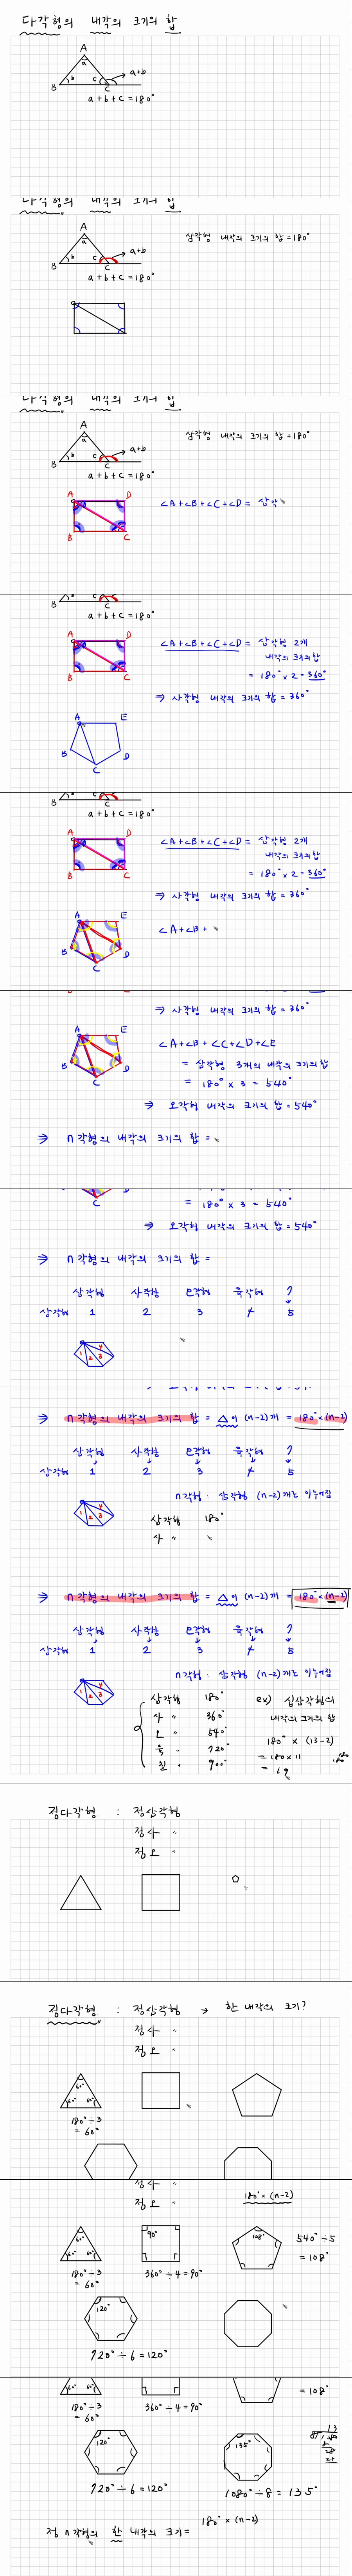 다각형의 내각의 크기의 합
A
a
b
c
a+b
B
C
a+b+c=180°
다각형의 내각의 크기의 합
A
삼각형 내각의 크기의 합 = 180°
a
b
c
a+b
B
C
a+b+c=180°
다각형의 내각의 크기의 합
A
삼각형 내각의 크기의 합 = 180°
a
b
c
a+b
B
C
a+b+c=180°
A D
∠A+∠B+∠C+∠D = 삼각
B C
B C
a+b+c=180°
A D
∠A+∠B+∠C+∠D = 삼각형 2개
내각의 크기의 합
B C
= 180° × 2 = 360°
⇒ 사각형 내각의 크기의 합 = 360°
A E
B D
C
B C
a+b+c=180°
A D
∠A+∠B+∠C+∠D = 삼각형 2개
내각의 크기의 합
B C
= 180° × 2 = 360°
⇒ 사각형 내각의 크기의 합 = 360°
A E
∠A+∠B+
B D
C
⇒ 사각형 내각의 크기의 합 = 360°
A E
∠A+∠B+∠C+∠D+∠E
B D
= 삼각형 3개의 내각의 크기의 합
C
= 180° × 3 = 540°
⇒ 오각형 내각의 크기의 합 = 540°
⇒ n각형의 내각의 크기의 합 =
C
= 180° × 3 = 540°
⇒ 오각형 내각의 크기의 합 = 540°
⇒ n각형의 내각의 크기의 합 =
삼각형 사각형 오각형 육각형 7
삼각형 1 2 3 4 5
1 2 3 4
⇒ n각형의 내각의 크기의 합 = △이 (n-2)개 = 180°×(n-2)
삼각형 사각형 오각형 육각형 7
삼각형 1 2 3 4 5
n각형 : 삼각형 (n-2)개로 이루어짐
1 2 3 4
삼각형 180°
사 〃
⇒ n각형의 내각의 크기의 합 = △이 (n-2)개 = 180°×(n-2)
삼각형 사각형 오각형 육각형 7
삼각형 1 2 3 4 5
n각형 : 삼각형 (n-2)개로 이루어짐
1 2 3 4
삼각형 180° ex) 십삼각형의
사 〃 360° 내각의 크기의 합
오 〃 540° 180° × (13-2)
육 〃 720° = 180×11
칠 〃 900° = 19
정다각형 : 정삼각형
정사 〃
정오 〃
정다각형 : 정삼각형 → 한 내각의 크기?
정사 〃
정오 〃
60°
60° 60°
180°÷3
= 60°
정사 〃
정오 〃
180°×(n-2)
60° 90° 108° 540°÷5
60° 60° = 108°
180°÷3 360°÷4=90°
= 60°
120°
720°÷6=120°
60° 60°
= 108°
180°÷3 360°÷4=90°
= 60°
120° 135°
720°÷6=120° 1080°÷8=135°
180°×(n-2)
정 n각형의 한 내각의 크기 =